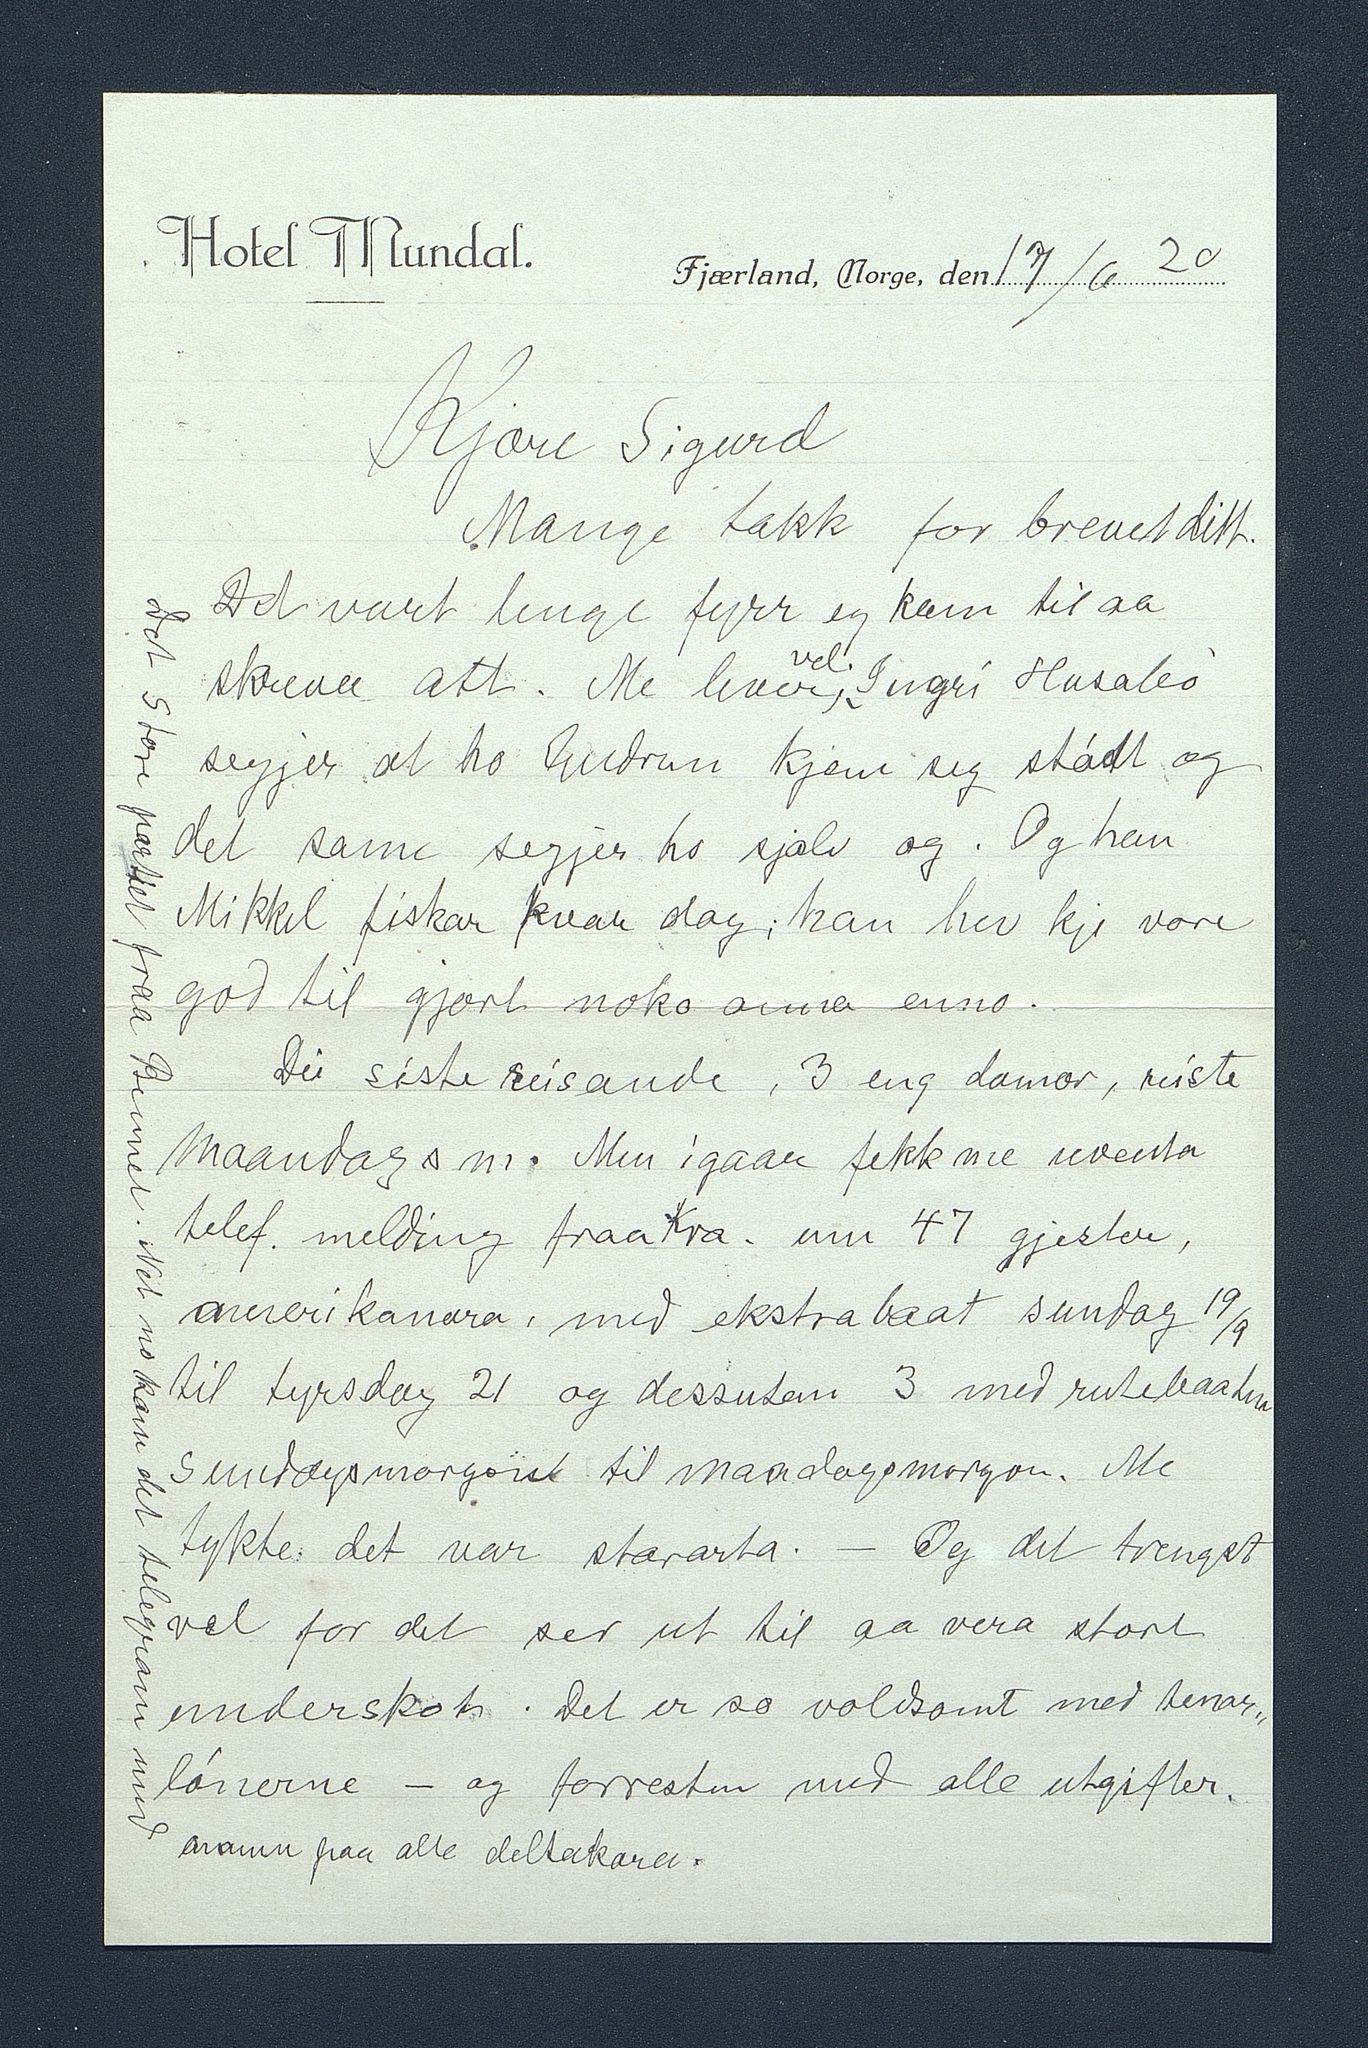 Hotel Mundal.
Fjærland, Norge, den 17/6 20
Kjære Sigurd
Mange takk for brevet ditt.
Det vart lenge fyrr eg kom til aa
skriva att. Me lever vel. Ingri Husabö
segjer at ho Gudrun kjem seg stódt og
det same segjer ho sjölv og. Og han
Mikkel fiskar kvar dag; han hev kje vore
god til gjort noko anna enno.
Dei siste reisande, 3 eng damor, reiste
maandags m. Men igaar fekk me uventa
telef. melding fraa Kra. um 47 gjester,
amerikanara, med ekstrabaat sundag 19/9
til tyrsdag 21 og dessutan 3 med rutebaaten
sundagsmorgon til maadagsmorgon. Me
tykte det var stararta. – Og det trengst
vel for det ser ut til aa vera stort
underskot. Det er so voldsomt med tenar„
lónerne – og forresten med alle utgifter.
Det store partiet fraa Bennet. Net no kom det telegram med
namn paa alle deltakara.